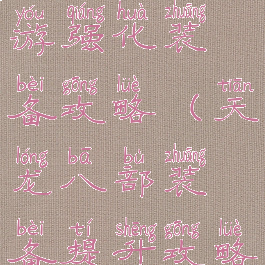 yóu qiáng huà zhuāng
游强化装
bèi gōng lüè tiān
备攻略（天
lóng bā bù zhuāng
龙八部装
bèi tí shēng gōng lüè
备提升攻略